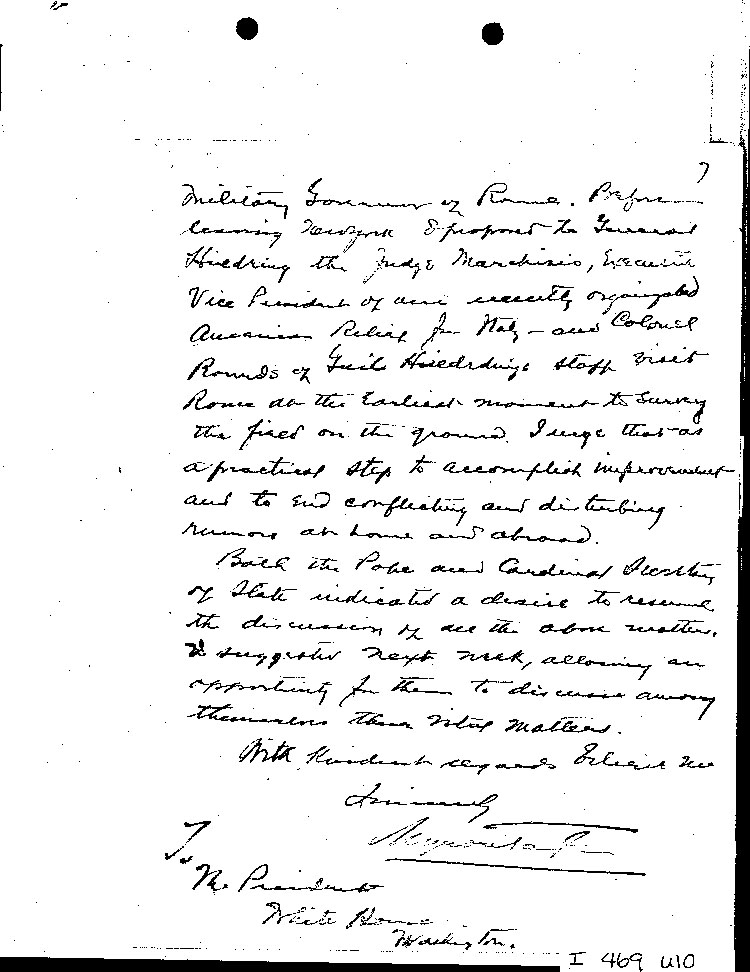 7
Military Governor of Rome. Before
leaving New York I proposed to General
Hilldring that Judge Marchisio, Executive
Vice President of our recently organized
American Relief for Italy – and Colonel
Rounds of Genl. Hilldring's staff visit
Rome at the Earliest moment to Survey
the field on the ground. I urge that as
a practical step to accomplish improvement
and to End conflicting and disturbing
rumors at home and abroad.
Both the Pope and Cardinal Secretary
of State indicated a desire to resume
the discussion of all the above matters.
I suggested next week, allowing an
opportunity for them to discuss among
themselves these vital matters.
With Kindest regards Believe me
Sincerely
Myron Taylor
To
The President
White House
Washington.
I 469 u10